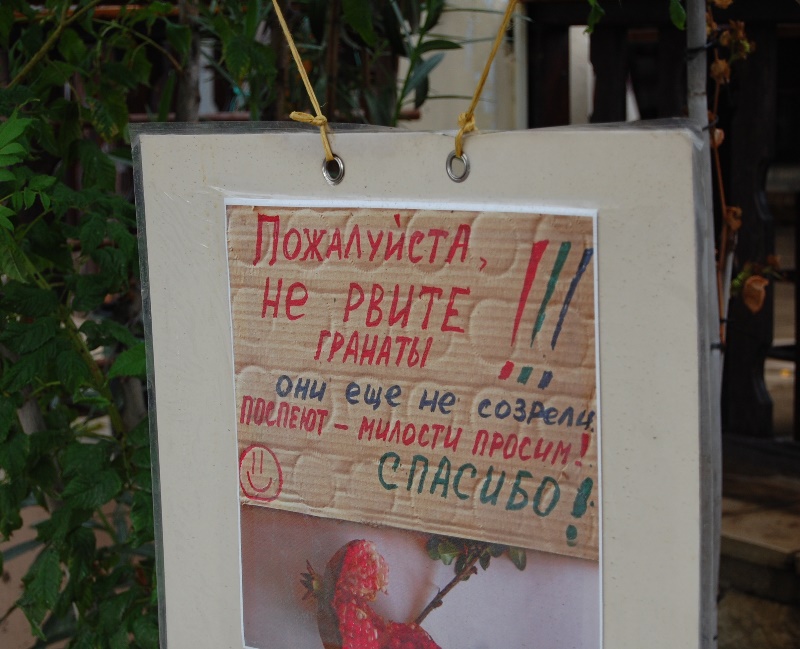 Пожалуйста, !!!
не рвите
гранаты
они еще не созрели.
поспеют – милости просим!
спасибо!